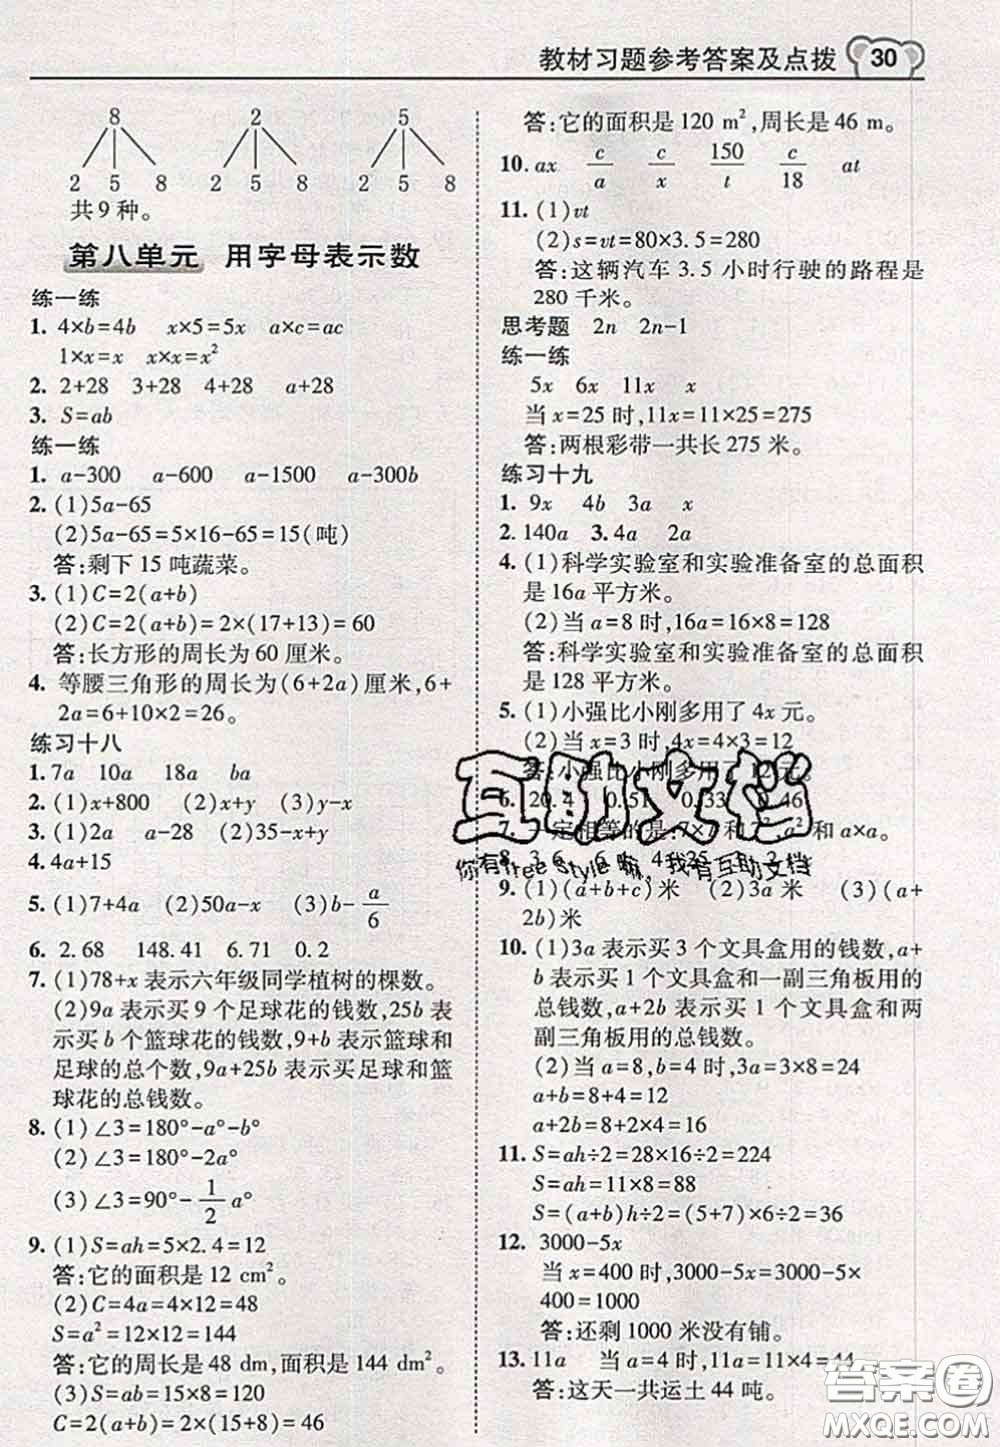 教材习题参考答案及点拨 30
8 2 5
2 5 8 2 5 8 2 5 8
共9种。
第八单元 用字母表示数
练一练
1. 4×b=4b x×5=5x a×c=ac
1×x=x x×x=x²
2. 2+28 3+28 4+28 a+28
3. S=ab
练一练
1. a-300 a-600 a-1500 a-300b
2. (1)5a-65
(2)5a-65=5×16-65=15(吨)
答:剩下 15 吨蔬菜。
3. (1)C=2(a+b)
(2)C=2(a+b)=2×(17+13)=60
答:长方形的周长为 60 厘米。
4. 等腰三角形的周长为(6+2a)厘米,6+
2a=6+10×2=26。
练习十八
1. 7a 10a 18a ba
2. (1)x+800 (2)x+y (3)y-x
3. (1)2a a-28 (2)35-x+y
4. 4a+15
5. (1)7+4a (2)50a-x (3)b-a/6
6. 2.68 148.41 6.71 0.2
7. (1)78+x 表示六年级同学植树的棵数。
(2)9a 表示买 9 个足球花的钱数,25b 表
示买 b 个篮球花的钱数,9+b 表示篮球和
足球的总个数,9a+25b 表示买足球和篮
球花的总钱数。
8. (1)∠3=180°-a°-b°
(2)∠3=180°-2a°
(3)∠3=90°-1/2 a°
9. (1)S=ah=5×2.4=12
答:它的面积是 12 cm²。
(2)C=4a=4×12=48
S=a²=12×12=144
答:它的周长是 48 dm,面积是 144 dm²。
(3)S=ab=15×8=120
C=2(a+b)=2×(15+8)=46
答:它的面积是 120 m²,周长是 46 m。
10. ax c/a c/x 150/t c/18 at
11. (1)vt
(2)s=vt=80×3.5=280
答:这辆汽车 3.5 小时行驶的路程是
280 千米。
思考题 2n 2n-1
练一练
5x 6x 11x x
当 x=25 时,11x=11×25=275
答:两根彩带一共长 275 米。
练习十九
1. 9x 4b 3a x
2. 140a 3. 4a 2a
4. (1)科学实验室和实验准备室的总面积
是 16a 平方米。
(2)当 a=8 时,16a=16×8=128
答:科学实验室和实验准备室的总面积
是 128 平方米。
5. (1)小强比小刚多用了 4x 元。
(2)当 x=3 时,4x=4×3=12
答:小强比小刚多用了 12 元。
6. 20.4 0.51 0.33 0.46
7. 一定相等的是:7×7 和 7²,a² 和 a×a。
互助文档
你有free style嘛,我有互助文档
9. (1)(a+b+c)米 (2)3a 米 (3)(a+
2b)米
10. (1)3a 表示买 3 个文具盒用的钱数,a+
b 表示买 1 个文具盒和一副三角板用的
总钱数,a+2b 表示买 1 个文具盒和两
副三角板用的总钱数。
(2)当 a=8,b=4 时,3a=3×8=24
a+b=8+4=12
a+2b=8+2×4=16
11. S=ah÷2=28×16÷2=224
S=ah=11×8=88
S=(a+b)h÷2=(5+7)×6÷2=36
12. 3000-5x
当 x=400 时,3000-5x=3000-5×
400=1000
答:还剩 1000 米没有铺。
13. 11a 当 a=4 时,11a=11×4=44
答:这天一共运土 44 吨。
答案圈
MXQE.COM